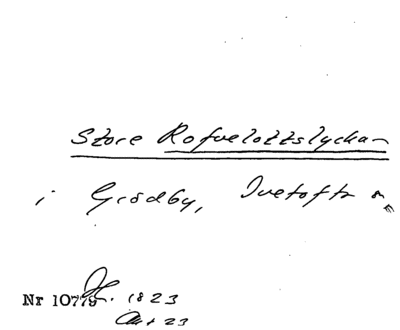 Store Rofvelottslyckan
i Grödby, Ivetofta sn
Nr 10779 1823
23